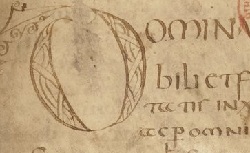 DOMIN
obili et p
tutis in
ate p omni